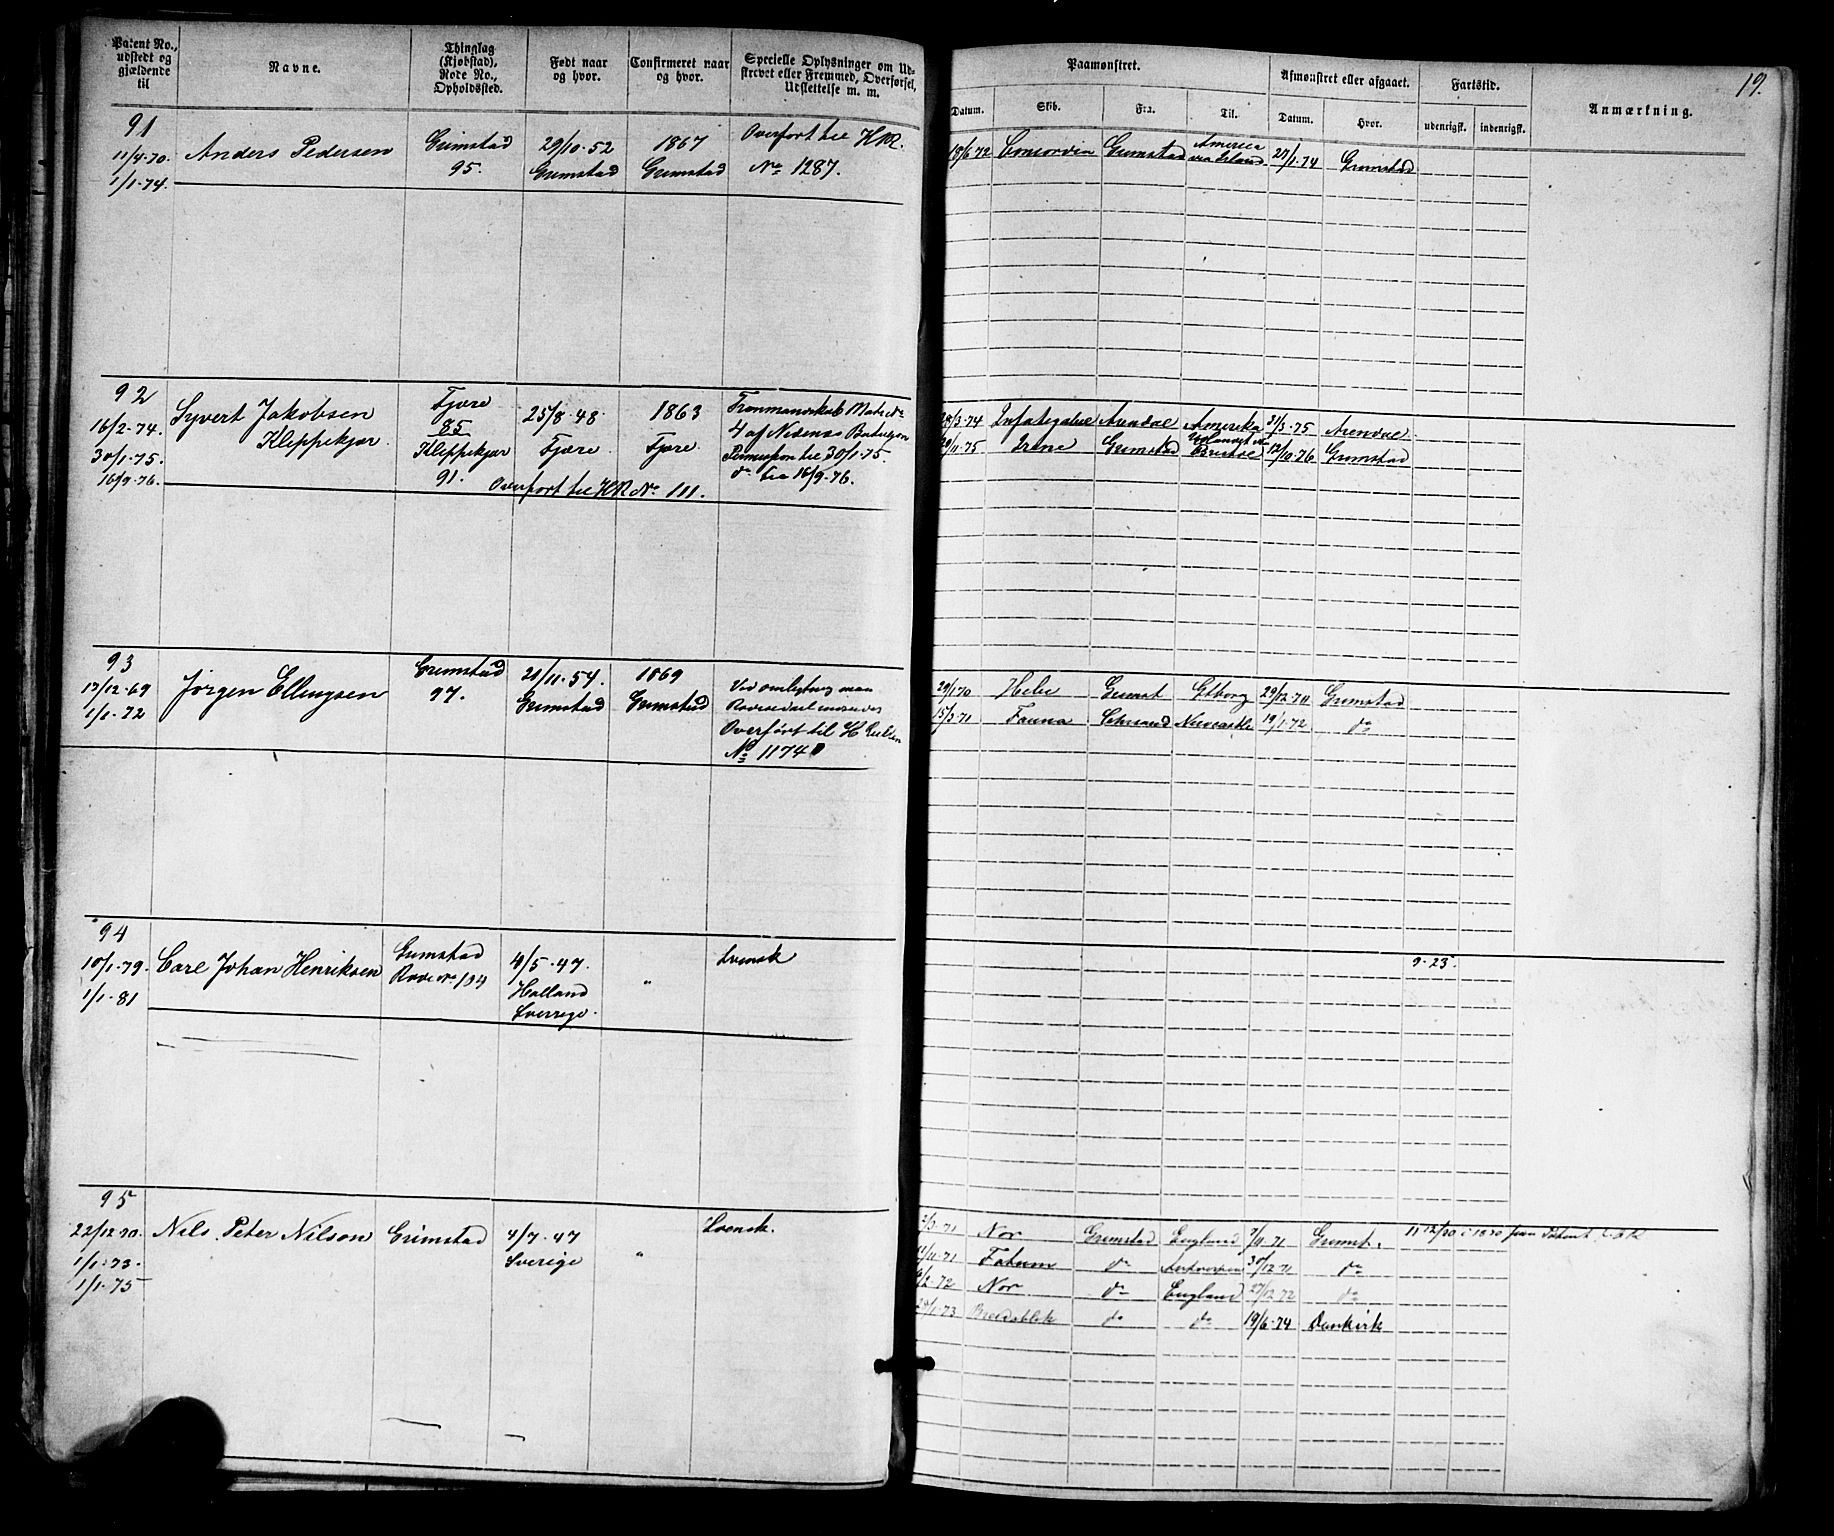 Patent No., udstedt og gjældende til
Navne.
Thinglag (Kjøbstad), Rode No., Opholdssted.
Født naar og hvor.
Confirmeret naar og hvor.
Specielle Oplysninger om Udskrevet eller Fremmed, Overførsel, Udslettelse m. m.
Paamønstret.
Datum.
Skib.
Fra.
Til.
Afmønstret eller afgaaet.
Datum.
Hvor.
Fartstid.
udenrigsk.
indenrigsk.
Anmærkning.
19.
91
11/4.70.
1/1.74.
Anders Pedersen
Grimstad
95.
29/10.52
Grimstad
1867
Grimstad
Overført til HR.
No 1287.
18/6 72 Concordia Grimstad America via Island. 27/1.74 Grimstad
92
16/2.74.
30/1.75.
16/9.76.
Syvert Jakobsen
Klippekjær.
Fjære
85
Klippekjær
91.
25/8.48
Fjære
1863
Fjære.
4 af Nedenæs
Permission til 30/1.75.
do til 16/9.76.
Overført til HR No 111.
28/3.74 Arendal Amerika 31/3.75 Arendal
29/11.75 Irene Grimstad Bristol 12/10.76 Grimstad
93
17/12.69
1/1.72
Jørgen Ellingsen
Grimstad
97.
21/11.54.
Grimstad
1869
Grimstad
Ved omlægtning
Overført til H Rullen
No 1174
29/1 70 Hebe Grimst Gtborg 29/12.70 Grimstad
15/3.71 Fauna Newcastle 19/1.72 do
94
10/1.79.
1/1.81
Carl Johan Henriksen
Grimstad
Rode No 194
4/5.47.
Halland
Sverrige.
"
Svensk
9-23.
95
22/12.70.
1/1.73.
1/1.75
Nils Peter Nilson
Grimstad
4/7.47
Sverige
"
Svensk.
2/3.71 Nor Grimstad England 7/11.71 Grimst.
14/11.71 Fatum do Antwerpen 30/12.71 do
9/2.72 Nor do England 27/12.72 do
28/1.73 Breidablik do do 19/6.74 Dunkirk